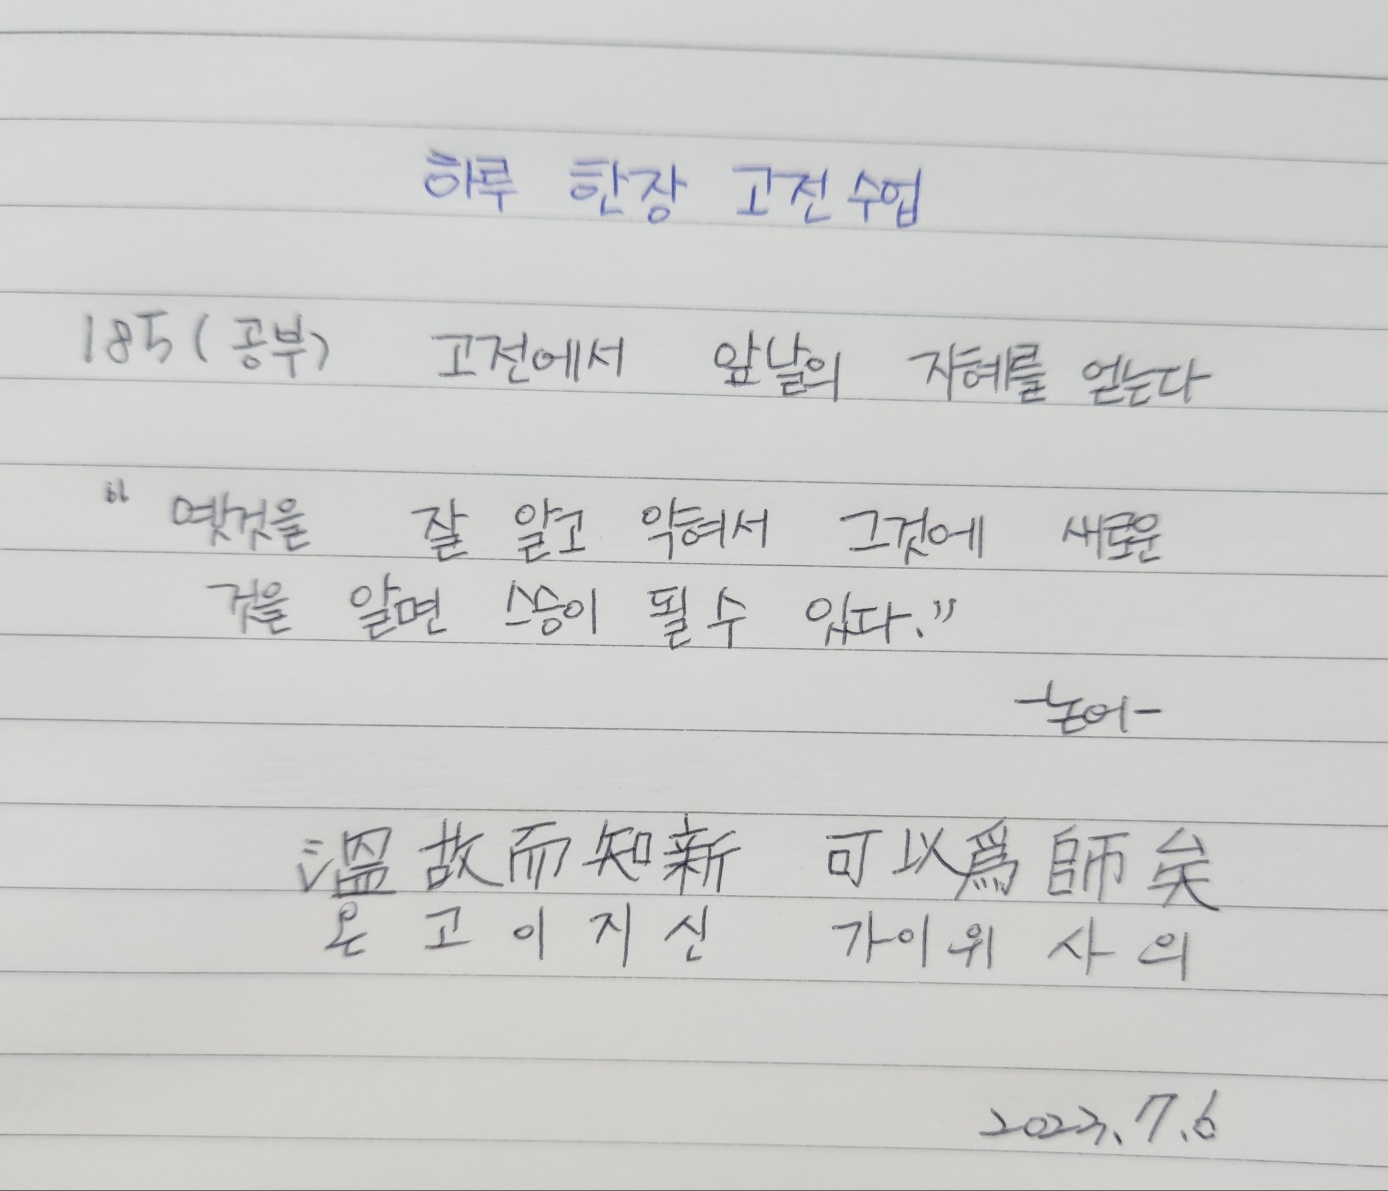 하루 한장 고전수업
185(공부) 고전에서 앞날의 지혜를 얻는다
“옛것을 잘 알고 익혀서 그것에 새로운
것을 알면 스승이 될 수 있다.”
-논어-
溫故而知新 可以爲師矣
온고이지신 가이위사의
2023.7.6